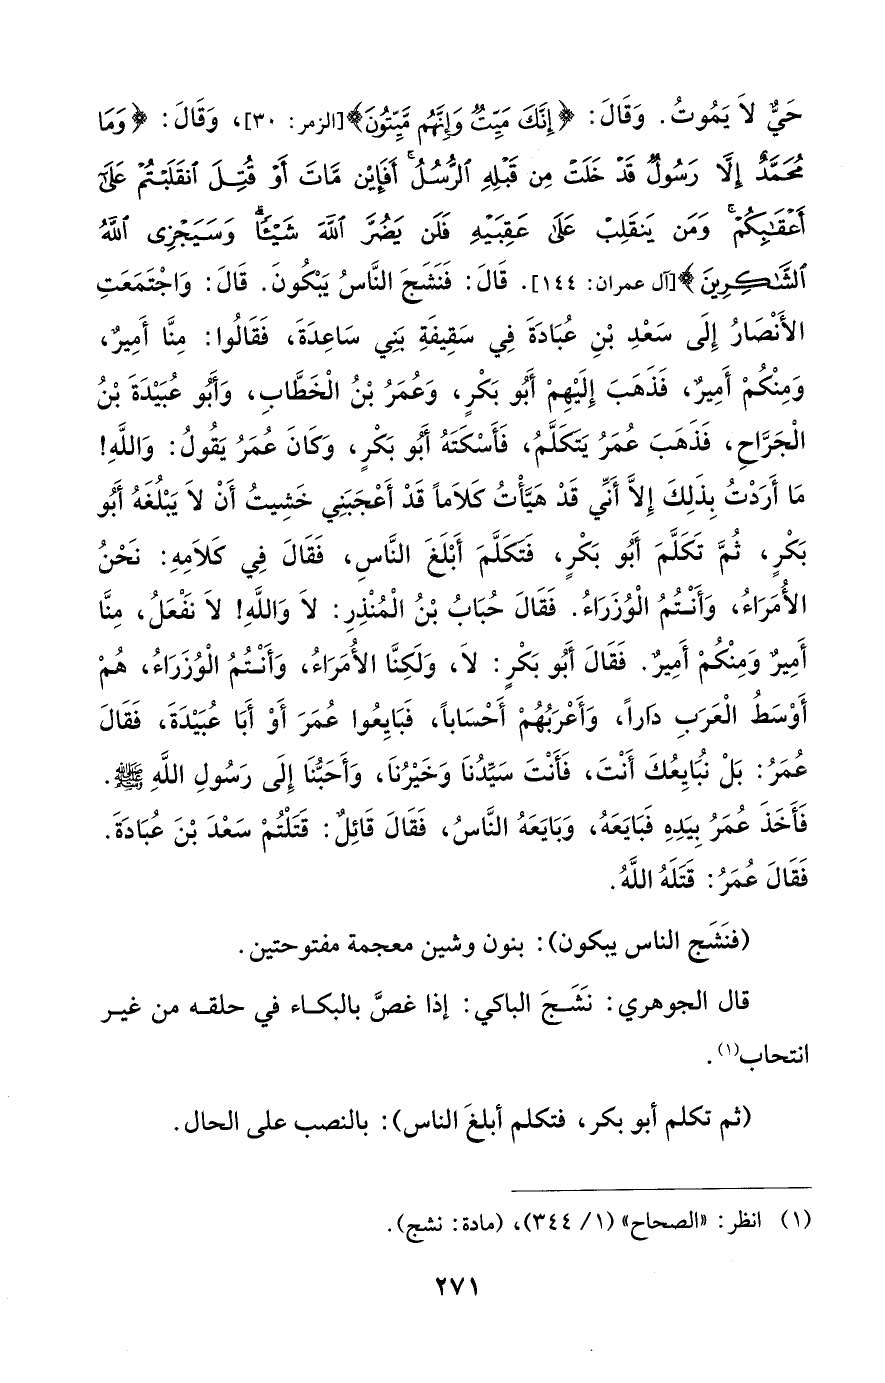 حَيٌّ لاَ يَمُوتُ. وَقَالَ: ﴿إِنَّكَ مَيِّتٌ وَإِنَّهُم مَّيِّتُونَ﴾[الزمر: ٣٠]، وَقَالَ: ﴿وَمَا
مُحَمَّدٌ إِلَّا رَسُولٌ قَدْ خَلَتْ مِن قَبْلِهِ ٱلرُّسُلُ ۚ أَفَإِيْن مَّاتَ أَوْ قُتِلَ ٱنقَلَبْتُمْ عَلَىٰٓ
أَعْقَٰبِكُمْ ۚ وَمَن يَنقَلِبْ عَلَىٰ عَقِبَيْهِ فَلَن يَضُرَّ ٱللَّهَ شَيْـًٔا ۗ وَسَيَجْزِى ٱللَّهُ
ٱلشَّٰكِرِينَ﴾[آل عمران: ١٤٤]. قَالَ: فَنَشَجَ النَّاسُ يَبْكُونَ. قَالَ: وَاجْتَمَعَتِ
الأَنْصَارُ إِلَى سَعْدِ بْنِ عُبَادَةَ فِي سَقِيفَةِ بَنِي سَاعِدَةَ، فَقَالُوا: مِنَّا أَمِيرٌ،
وَمِنْكُمْ أَمِيرٌ، فَذَهَبَ إِلَيْهِمْ أَبُو بَكْرٍ، وَعُمَرُ بْنُ الْخَطَّابِ، وَأَبُو عُبَيْدَةَ بْنُ
الْجَرَّاحِ، فَذَهَبَ عُمَرُ يَتَكَلَّمُ، فَأَسْكَتَهُ أَبُو بَكْرٍ، وَكَانَ عُمَرُ يَقُولُ: وَاللَّهِ!
مَا أَرَدْتُ بِذَلِكَ إِلاَّ أَنِّي قَدْ هَيَّأْتُ كَلاَماً قَدْ أَعْجَبَنِي خَشِيتُ أَنْ لاَ يَبْلُغَهُ أَبُو
بَكْرٍ، ثُمَّ تَكَلَّمَ أَبُو بَكْرٍ، فَتَكَلَّمَ أَبْلَغَ النَّاسِ، فَقَالَ فِي كَلاَمِهِ: نَحْنُ
الأُمَرَاءُ، وَأَنْتُمُ الْوُزَرَاءُ. فَقَالَ حُبَابُ بْنُ الْمُنْذِرِ: لاَ وَاللَّهِ! لاَ نَفْعَلُ، مِنَّا
أَمِيرٌ وَمِنْكُمْ أَمِيرٌ. فَقَالَ أَبُو بَكْرٍ: لاَ، وَلَكِنَّا الأُمَرَاءُ، وَأَنْتُمُ الْوُزَرَاءُ، هُمْ
أَوْسَطُ الْعَرَبِ دَاراً، وَأَعْرَبُهُمْ أَحْسَاباً، فَبَايِعُوا عُمَرَ أَوْ أَبَا عُبَيْدَةَ، فَقَالَ
عُمَرُ: بَلْ نُبَايِعُكَ أَنْتَ، فَأَنْتَ سَيِّدُنَا وَخَيْرُنَا، وَأَحَبُّنَا إِلَى رَسُولِ اللَّهِ ﷺ.
فَأَخَذَ عُمَرُ بِيَدِهِ فَبَايَعَهُ، وَبَايَعَهُ النَّاسُ، فَقَالَ قَائِلٌ: قَتَلْتُمْ سَعْدَ بْنَ عُبَادَةَ.
فَقَالَ عُمَرُ: قَتَلَهُ اللَّهُ.
(فنَشَج الناس يبكون): بنون وشين معجمة مفتوحتين.
قال الجوهري: نَشَجَ الباكي: إذا غصَّ بالبكاء في حلقه من غير
انتحاب(١).
(ثم تكلم أبو بكر، فتكلم أبلغَ الناس): بالنصب على الحال.
(١) انظر: «الصحاح» (١/ ٣٤٤)، (مادة: نشج).
٢٧١